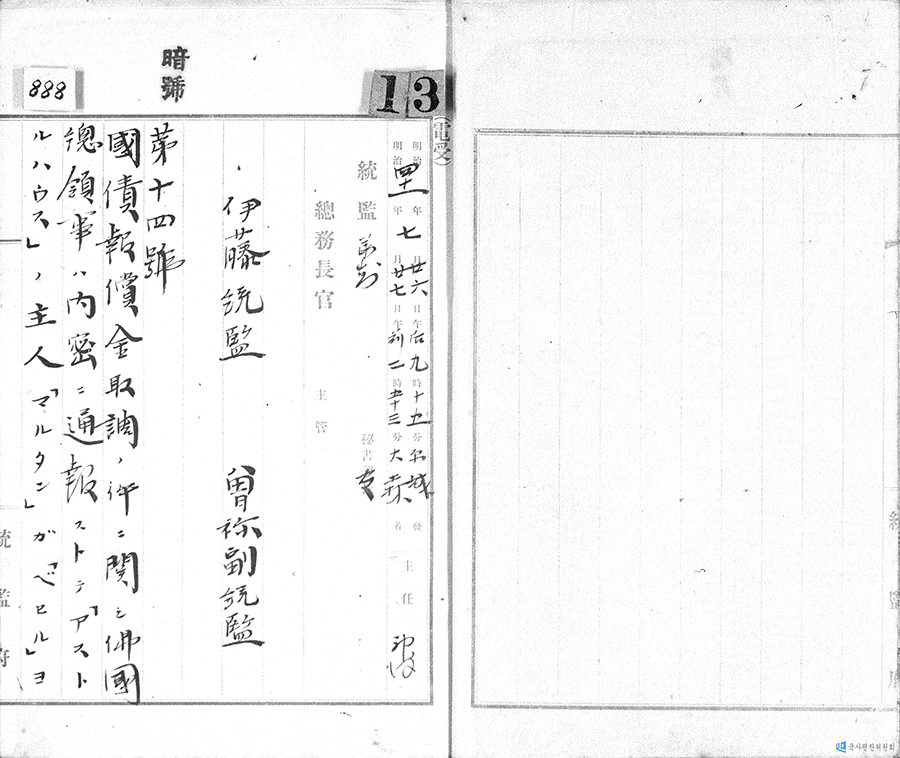 暗號
888
13
(電受)
明治四十一年七月廿六日午后九時十五分京城發
明治 年 月廿七日午前二時五十三分大森着
主任
統監
秘書
總務長官
主管
伊藤統監
曾禰副統監
第十四號
國債報償金取調ノ件ニ関シ佛國
總領事ハ内密ニ通報ストテ「アスト
ルハウス」ノ主人「マルタン」ガ「ベセル」ヨ
統監府
統監府
국사편찬위원회